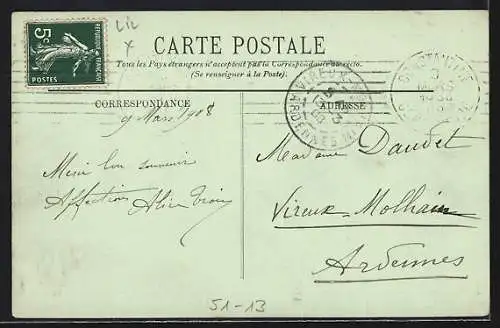 LIL
X
5c
REPUBLIQUE FRANÇAISE
POSTES
CARTE POSTALE
Tous les Pays étrangers n'acceptent pas la Correspondance au recto.
(Se renseigner à la Poste).
CORRESPONDANCE
ADRESSE
VIREUX
ARDENNES
CONSTANTINE
9 Mars 1908
Madame Daudet
Vireux-Molhain
Ardennes
Mini bon souvenir
Affection Alice
51-13